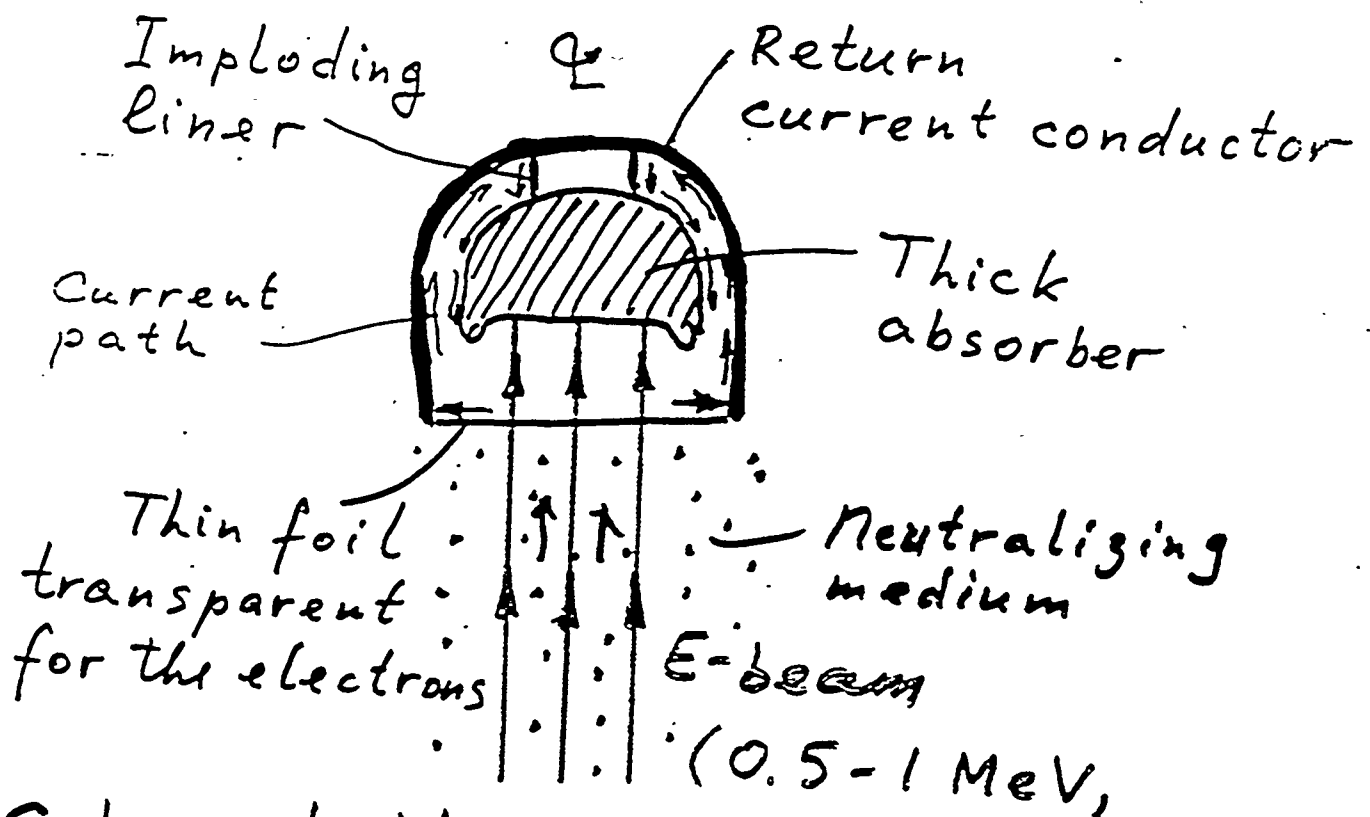 Imploding
liner
℄
Return
current conductor
Current
path
Thick
absorber
Thin foil
transparent
for the electrons
Neutralizing
medium
E-beam
(0.5-1 MeV,